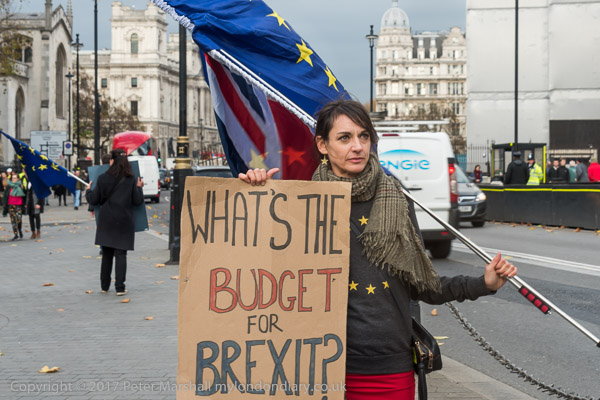 WHAT'S THE
BUDGET
FOR
BREXIT?
ENGIE
Copyright © 2017 Peter Marshall mylondondiary.co.uk